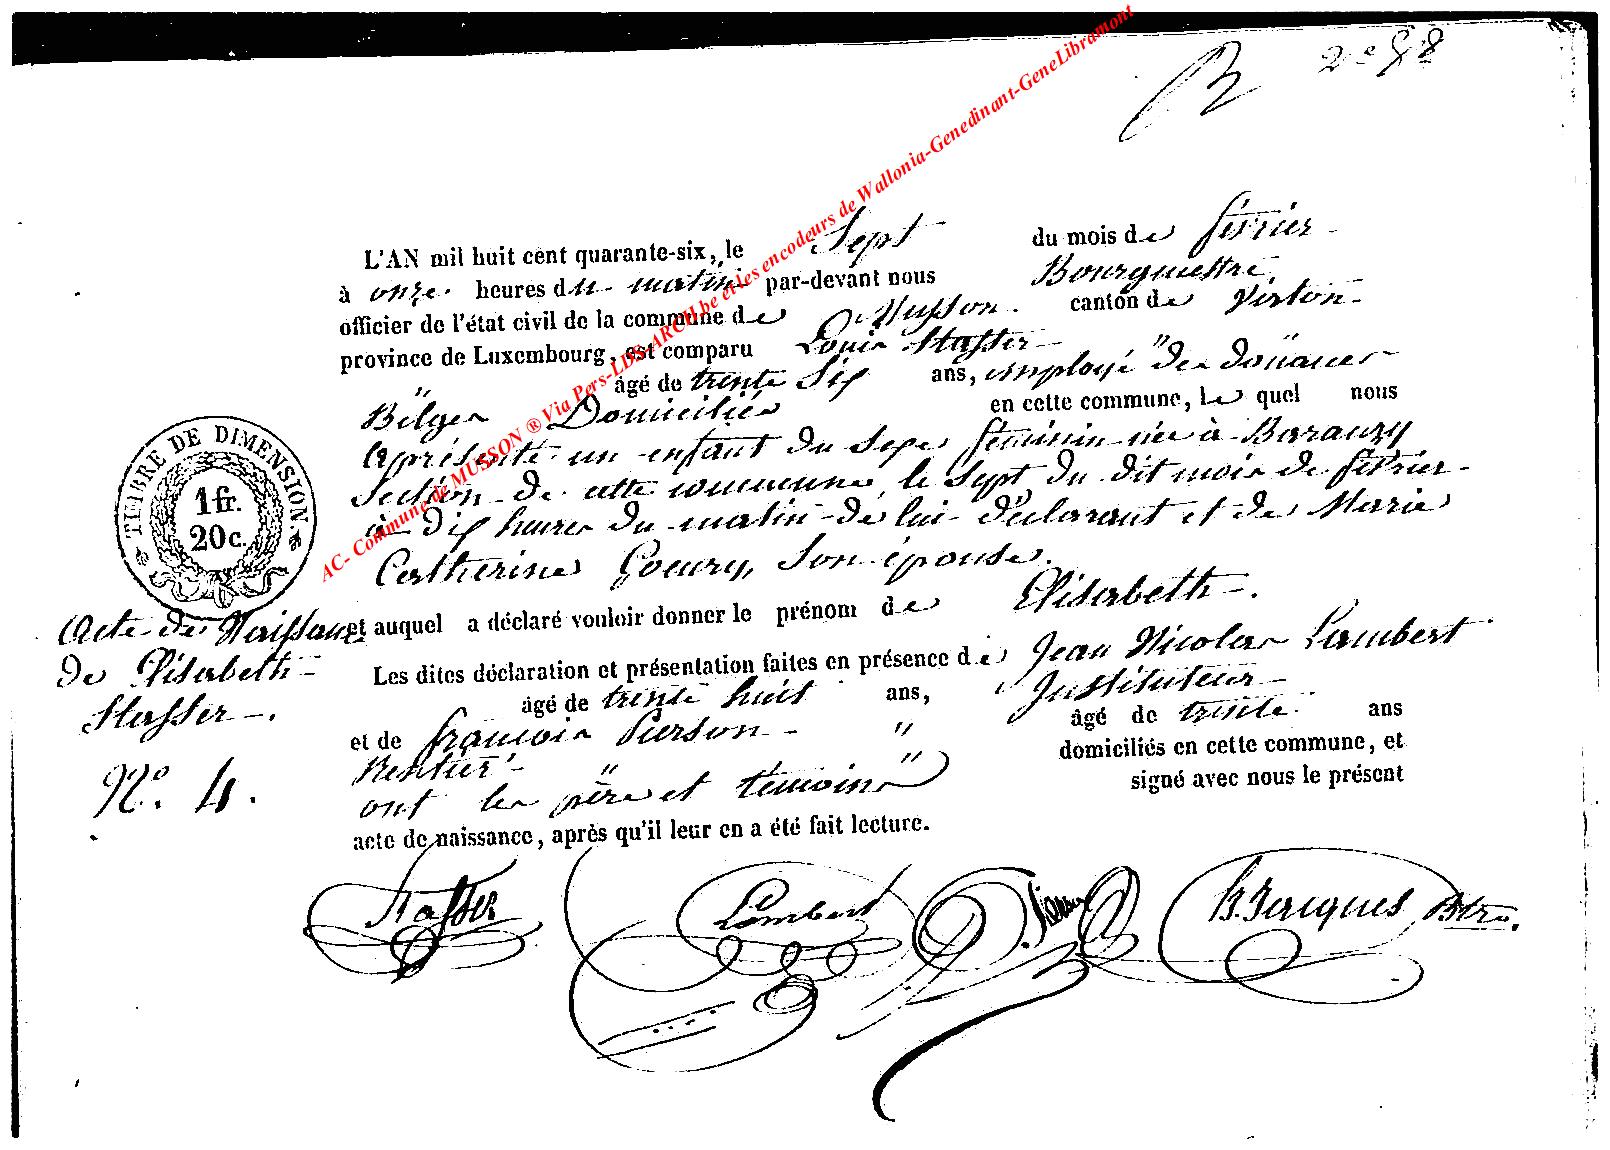 2e 88
L'AN mil huit cent quarante-six, le Sept du mois de février
à onze heures du matin par-devant nous Bourgmestre,
officier de l'état civil de la commune de Musson. canton de Virton
province de Luxembourg, est comparu Louis Stasser
" âgé de trente Six ans, employé des douänes
Belges Domicilié en cette commune, le quel nous
a présenté un enfant du Sexe féminin née à Baranzy
Section de cette commune, le Sept du dit mois de février
à dix heures du matin de lui déclarant et de Marie
Catherine Goeury, Son épouse.
et auquel a déclaré vouloir donner le prénom de Elisabeth.
Les dites déclaration et présentation faites en présence de Jean Nicolas Lambert
âgé de trente huit ans, Instituteur
et de françois Pierson " âgé de trente ans
Rentier " " domiciliés en cette commune, et
ont les père et témoins signé avec nous le présent
acte de naissance, après qu'il leur en a été fait lecture.
TIMBRE DE DIMENSION.
1 fr.
20 c.
Acte de Naissance
de Elisabeth
Stasser.
No. 4.
Stasser Lambert Pierson Jacques Btre.
AC- Commune de MUSSON ® Via Pers-LDS-ARCH.be et les encodeurs de Wallonia-Genedinant-GeneLibramont